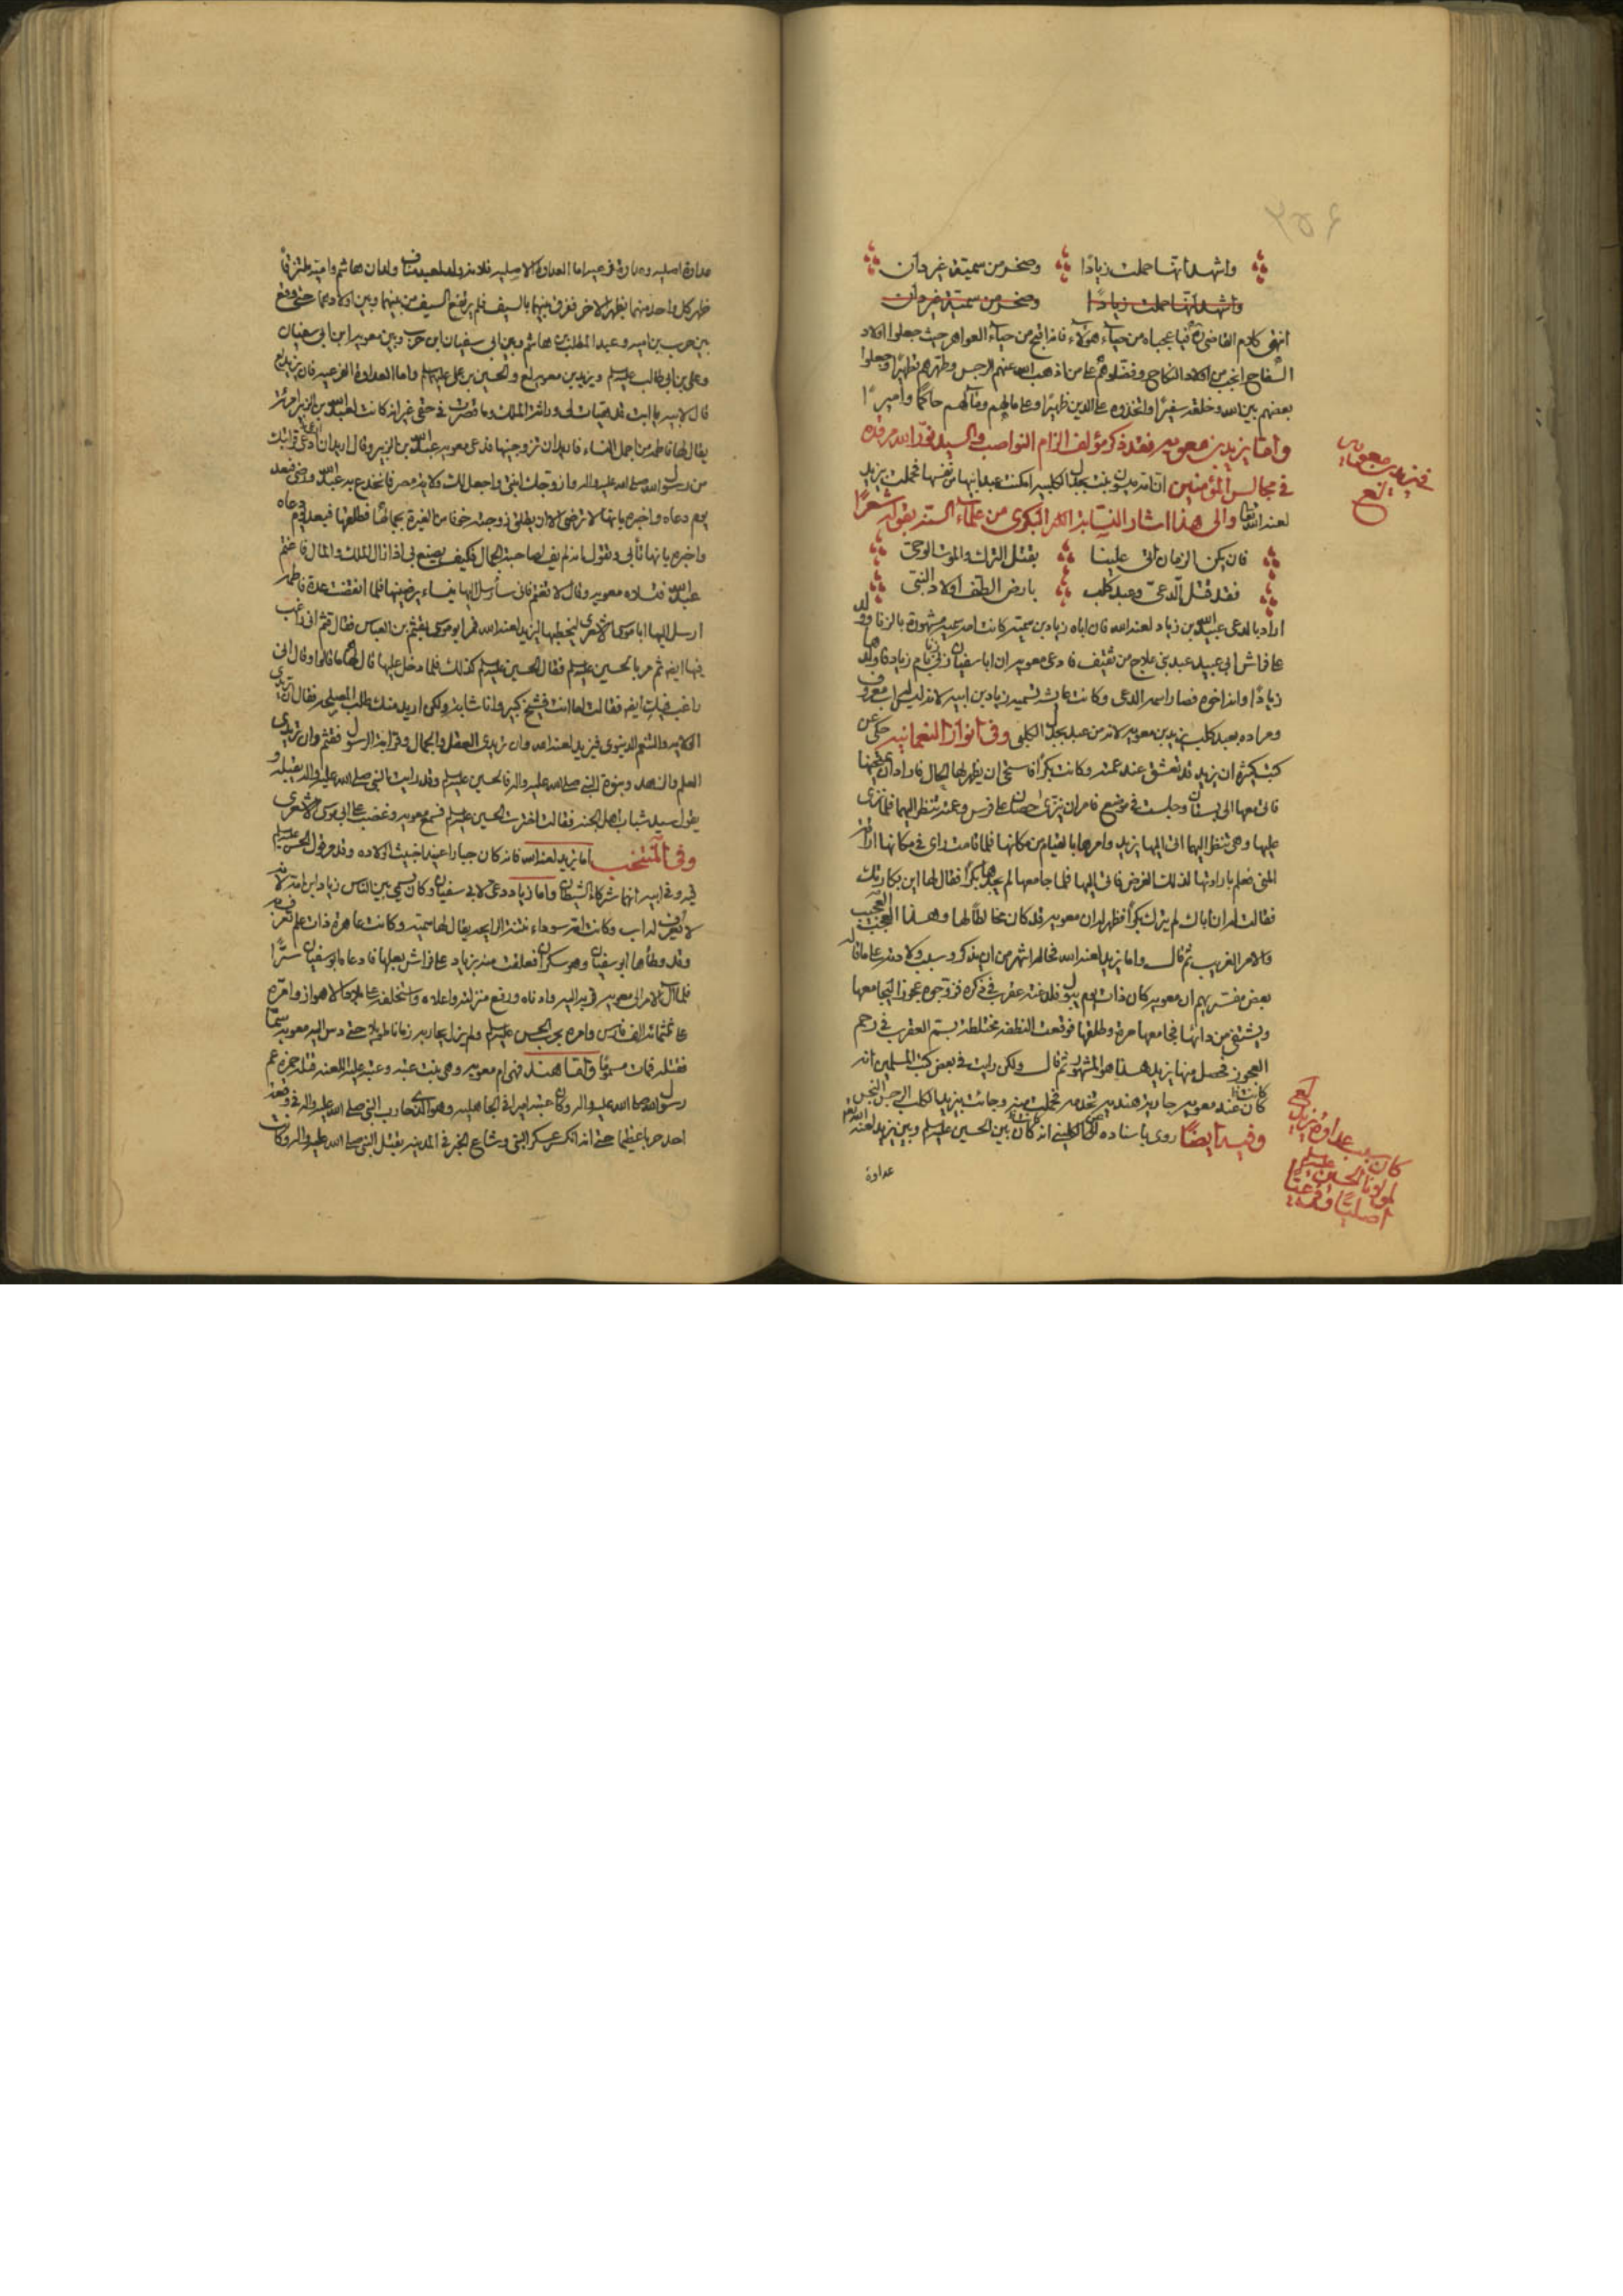 ٣٥٤
واشهد انها حملت زيادًا وصخر من سمية غير دان
واشهد انها حملت زيادًا وصخر من سمية غير دان
انتهى كلام القاضي فيا عجباه من حياء هؤلاء فانه اقبح من حياء العواهر حيث جعلوا اولاد
السفاح انجب من اولاد النكاح وفضلوهم على من اذهب الله عنهم الرجس وطهرهم تطهيرا وجعلوا
بعضهم بين الله وخلقه سفيرًا واتخذوه على الدين ظهيرًا وعلى مالهم حاكمًا واميرًا
واما يزيد بن معويه فقد ذكر مؤلف الزام النواصب والسيد نور الله مرقده
في مجالس المؤمنين ان امه ميسون بنت بجدل الكلبيه امكنت عبد ابيها من نفسها فحملت يزيد
لعنه الله تعا والى هذا اشار النسابة البكرى من علماء السنة بقوله شعرًا
فان يكن الزمان اتى علينا بقتل الترك والموت الوحى
فقد قتل الدعى وعبد كلب بارض الطف اولاد النبى
اراد بالدعى عبيد الله بن زياد لعنه الله فان اباه زياد بن سمية كانت امه سميه مشهورة بالزنا وولد
على فراش ابى عبيد عبد بنى علاج من ثقيف فادعى معويه ان ابا سفيان زنى بام زياد فاولدها
زيادًا وانه اخوه فصار اسمه الدعى وكانت عايشه تسميه زياد بن ابيه لانه ليس له اب معروف
ومراده بعبد كلب يزيد بن معويه لانه من عبد بجدل الكلبى وفى انوار النعمانيه حكى عن
كتب كثيرة ان يزيد قد تعشق عند عمته وكانت بكرًا فاستحى ان يظهر لها الحال فاراد ان يمتحنها
فاتى معها الى بستان وجلست فى موضع فامر ان ينزى حصان على فرس وعمته تنظر اليهما فلما نزى
عليها وهى تنظر اليهما اتى اليها يزيد وامرها بالقيام من مكانها فلما قامت راى فى مكانها اراقة
المنى فعلم بارادتها لذلك الغرض فاتى اليها فلما جامعها لم يجدها بكرًا فقال لها اين بكارتك
فقالت له ان اباك لم يترك بكرًا فظهر له ان معويه قد كان مخالطًا لها وهذا العجب العجيب
والامر الغريب ثم قال واما يزيد لعنه الله فحاله اشهر من ان يذكر وسبب ولادته على ما قاله
بعض مفسريهم ان معويه كان ذات يوم يبول فلدغته عقرب فى ذكره فزوجوه عجوزًا ليجامعها
ويشتفى من دائها فجامعها مرة وطلقها فوقعت النطفه مختلطة بسم العقرب فى رحم
العجوز فحصل منها يزيد هذا هو المشهور ثم قال ولكن رايت فى بعض كتب المسلمين انه
كان عند معويه جارية هنديه تخدمه فحملت منه وجائت بيزيد الكلب الرجس النجس
وفيه ايضًا روى باسناده الى الكلينى انه كان بين الحسين عليه السلم وبين يزيد لعنه الله
عداوة
فى يزيد بن معويه لع
كان سبب عداوة يزيد لع
لمولانا الحسين عليه السلم
اصليًا وفرعيًا
عداوة اصليه وعداوة فرعيه اما العداوة الاصليه فلانه ولد لعبد مناف ولدان هاشم واميه ملتزقًا
ظهر كل واحد منهما بظهر الاخر ففرق بينهما بالسيف فلم يرتفع السيف من بينهما وبين اولادهما حتى وقع
بين حرب بن اميه وعبد المطلب بن هاشم وبين ابى سفيان بن حرب وبين معويه ابن ابى سفيان
وعلى بن ابى طالب عليه السلم ويزيد بن معويه لع والحسين بن على عليه السلم واما العداوة الفرعيه فان يزيد لع
قال لابيه يا ابت قد هيات لى وراثة الملك وما قصرت فى حقى غير انه كانت لعبد الله بن الزبير امرئة
يقال لها فاطمه من اجمل النساء فاريد ان تزوجنيها فدعى معويه عبد الله بن الزبير وقال اريد ان ادعى قرابتك
من رسول الله صلى الله عليه واله وازوجك ابنتى واجعل لك ولاية مصر فانخدع به عبد الله ورضى فبعد
يوم دعاه واخبره بانها لا ترضى الا ان يطلق زوجته خوفا من الغيرة بجمالها فطلقها فبعد يوم دعاه
واخبره بانها تأبى وتقول انه لم يف لصاحبة الجمال فكيف يصنع بى اذا زال الملك والمال فاغتم
عبد الله فناداه معويه وقال لا تغتم فانى سأرسل اليها نساء يرضينها فلما انقضت عدة فاطمه
ارسل اليها ابا موسى الاشعرى ليخطبها ليزيد لعنه الله فمر ابو موسى بقثم بن العباس فقال قثم انى راغب
فيها ايضا ثم مر بالحسين عليه السلم فقال الحسين عليه السلم كذلك فلما دخل عليها قال لها ما قالوا وقال انى
راغب فيك ايضا فقالت اما انت فشيخ كبير وانا شابة ولكن اريد منك طلب المصلحه فقال ان تريدى
الاكل والتنعم الدنيوى فيزيد لعنه الله وان تريدى العقل والجمال وقرابة الرسول فقثم وان تريدى
العلم والزهد وبنوة النبى صلى الله عليه واله فالحسين عليه السلم وقد رايت النبى صلى الله عليه واله يقبله و
يقول سيد شباب اهل الجنه فقالت اخترت الحسين عليه السلم فسمع معويه وغضب على ابى موسى الاشعرى
وفى المنتخب اما يزيد لعنه الله فانه كان جبارًا عنيدا خبيث الولاده وقد مر قول الحسن عليه السلم
فيه وفى ابيه انهما شركاء الشيطان واما زياد دعى لابى سفيان وكان يسمى بين الناس زياد ابن امه لانه
لا يعرف له اب وكانت امه سوداء نتنة الرايحه يقال لها سميه وكانت عاهرة ذات علم تعرف به
وقد وطأها ابو سفيان وهو سكران فعلقت منه بزياد على فراش بعلها فادعاه ابو سفيان سرًا
فلما آل الامر الى معويه قربه اليه وادناه ورفع منزلته واعلاه واستخلفه على ولاية الاهواز وامّره
على ثمانه الف فارس وامره بحرب الحسن عليه السلم ولم يزل يحاربه زمانا طويلا حتى دس اليه معويه سمًا
فقتله فمات مسمومًا واما هند فهى ام معويه وهى بنت عتبه وعتبه عليه اللعنه قتله حمزه عم
رسول الله صلى الله عليه واله وكان عتبه اميرا فى الجاهليه وهو الذى حارب النبى صلى الله عليه واله فى وقعة
احد حربا عظيما حتى انه انكسر عسكر النبى وشاع الخبر فى المدينه بقتل النبى صلى الله عليه واله وكانت